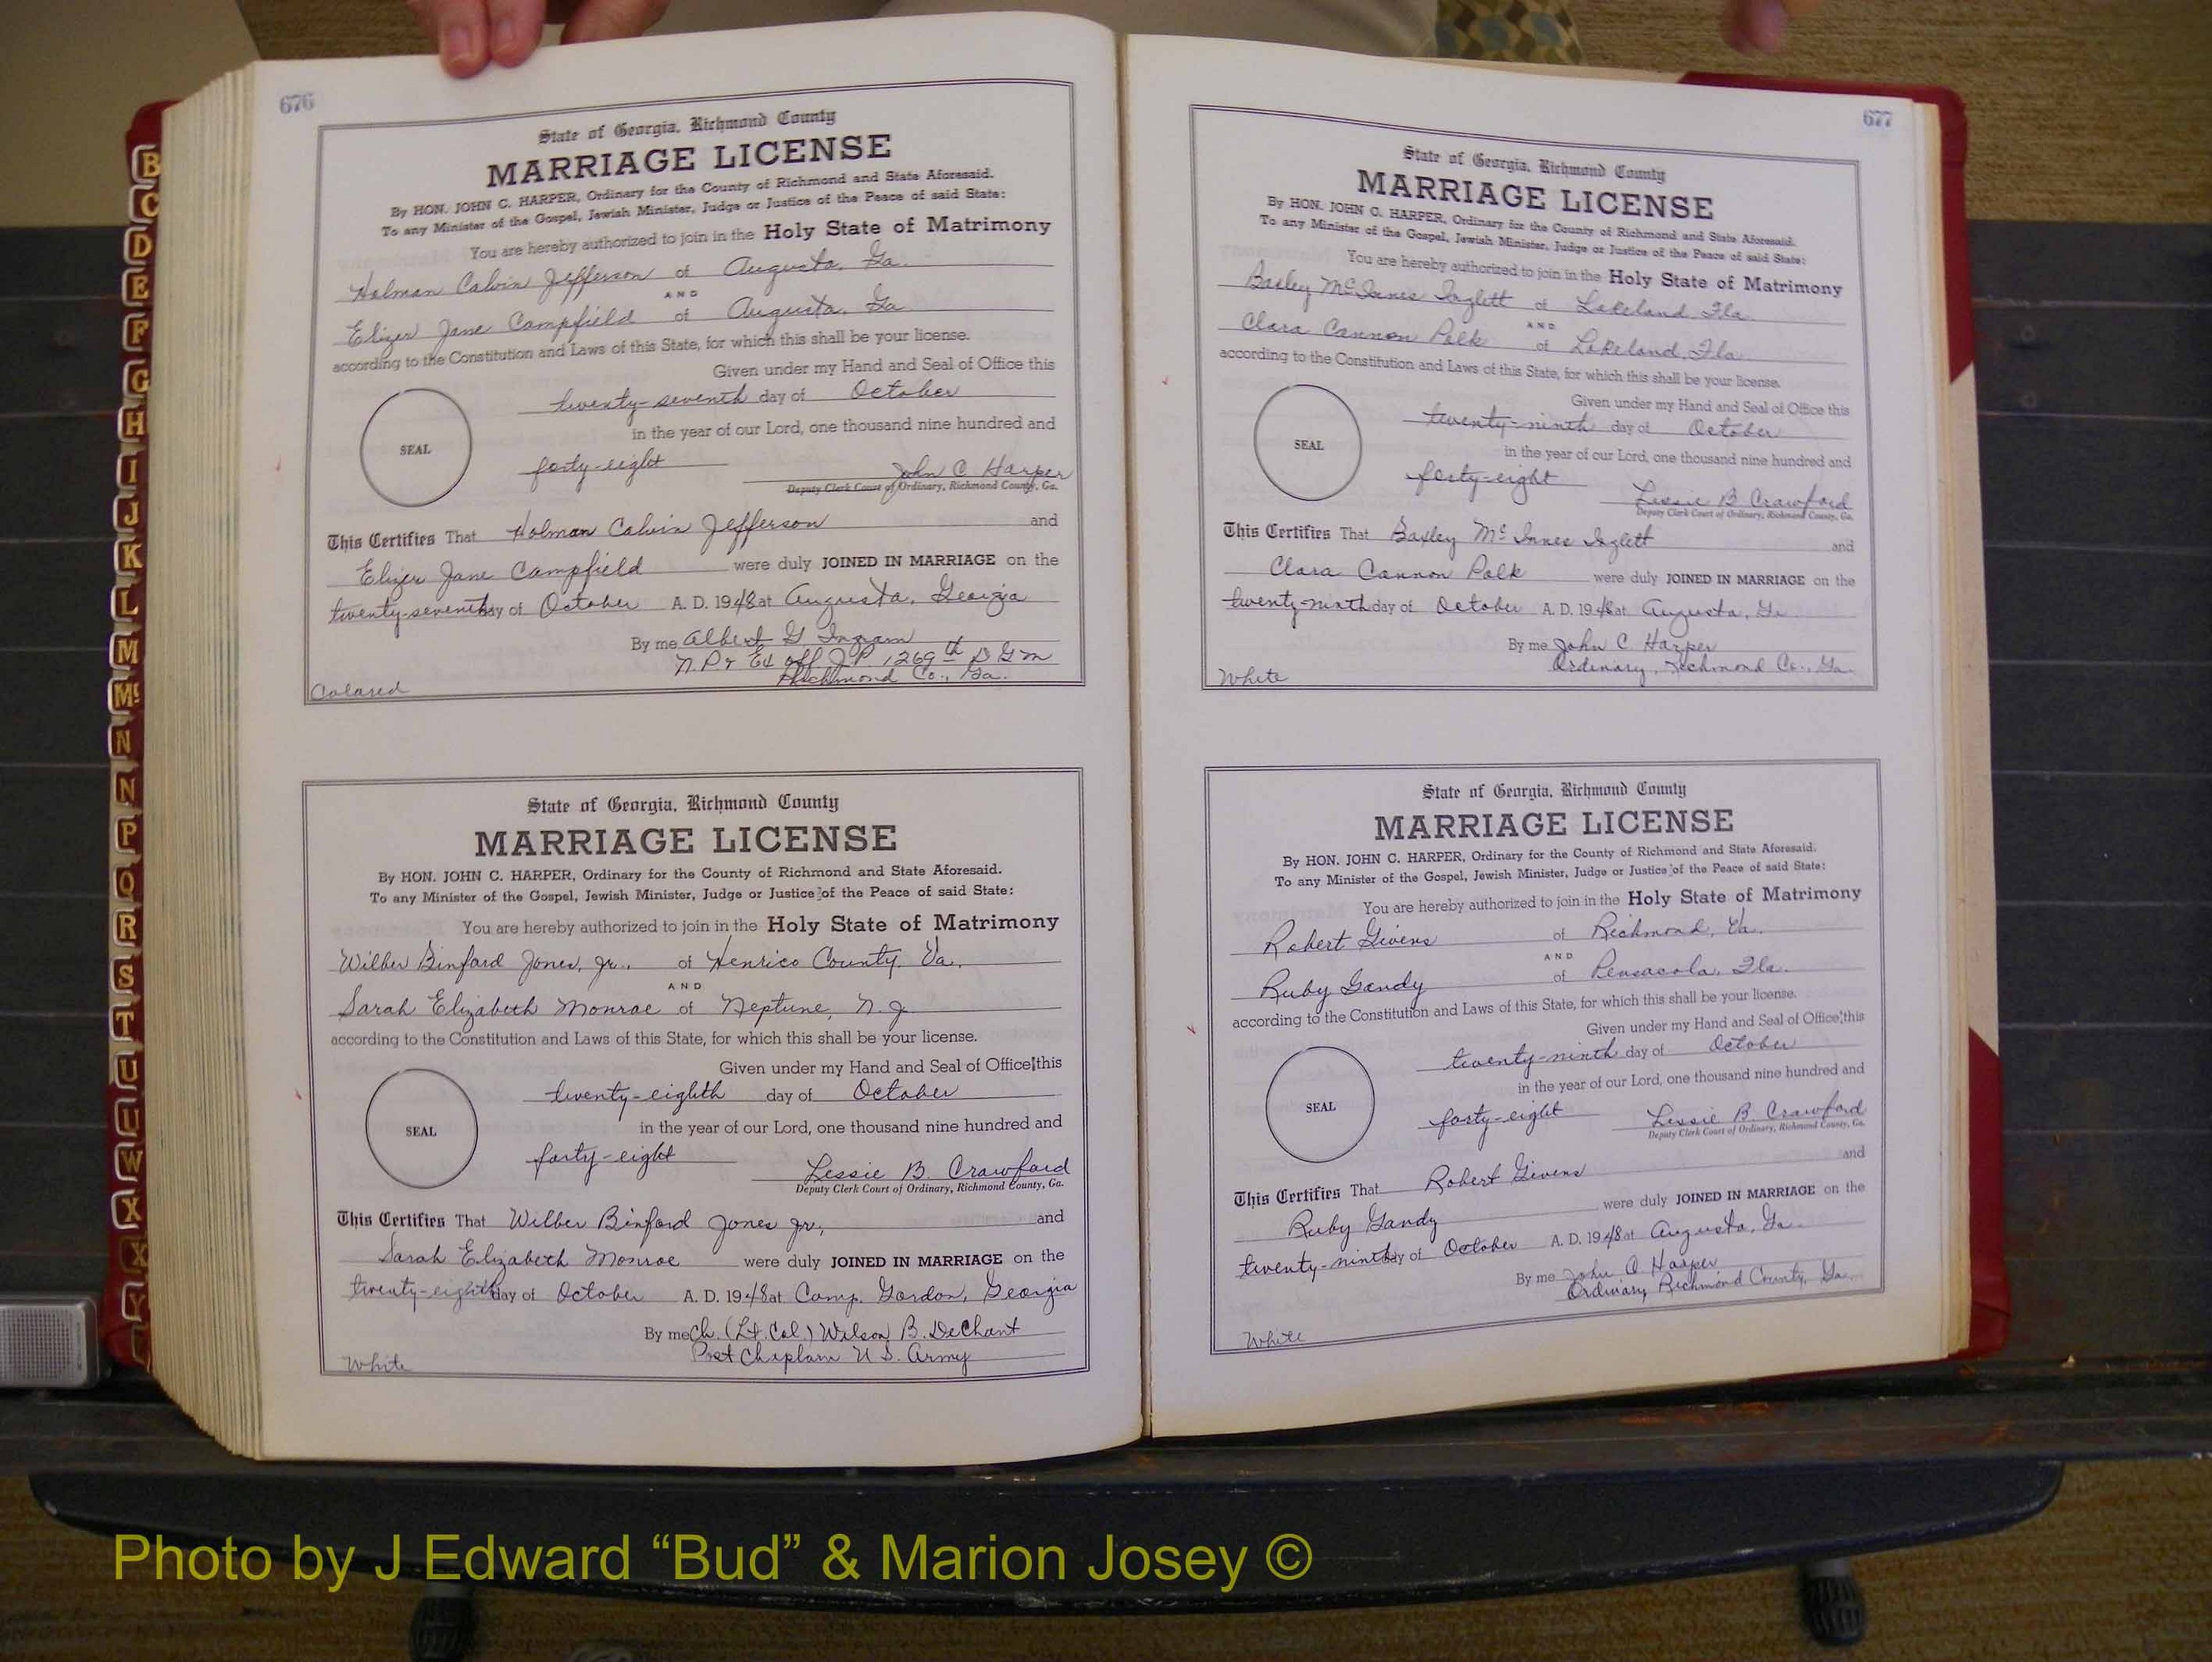 676
State of Georgia, Richmond County
MARRIAGE LICENSE
By HON. JOHN C. HARPER, Ordinary for the County of Richmond and State Aforesaid.
To any Minister of the Gospel, Jewish Minister, Judge or Justice of the Peace of said State:
You are hereby authorized to join in the Holy State of Matrimony
Holman Calvin Jefferson of Augusta, Ga.
AND
Elizer Jane Campfield of Augusta, Ga
according to the Constitution and Laws of this State, for which this shall be your license.
Given under my Hand and Seal of Office this
twenty-seventh day of October
in the year of our Lord, one thousand nine hundred and
SEAL
forty-eight John C. Harper
Deputy Clerk Court of Ordinary, Richmond County, Ga.
This Certifies That Holman Calvin Jefferson and
Elizer Jane Campfield were duly JOINED IN MARRIAGE on the
twenty-seventh day of October A. D. 1948 at Augusta, Georgia
By me Albert G Ingram
N.P. & Ex off. J.P. 1269th D G M
Richmond Co., Ga.
Colored
State of Georgia, Richmond County
MARRIAGE LICENSE
By HON. JOHN C. HARPER, Ordinary for the County of Richmond and State Aforesaid.
To any Minister of the Gospel, Jewish Minister, Judge or Justice of the Peace of said State:
You are hereby authorized to join in the Holy State of Matrimony
Wilber Binford Jones, Jr., of Henrico County, Va.
AND
Sarah Elizabeth Monroe of Neptune, N.J.
according to the Constitution and Laws of this State, for which this shall be your license.
Given under my Hand and Seal of Office this
twenty-eighth day of October
in the year of our Lord, one thousand nine hundred and
SEAL
forty-eight Lessie B. Crawford
Deputy Clerk Court of Ordinary, Richmond County, Ga.
This Certifies That Wilber Binford Jones Jr., and
Sarah Elizabeth Monroe were duly JOINED IN MARRIAGE on the
twenty-eighth day of October A. D. 1948 at Camp. Gordon, Georgia
By me Ch. (Lt. Col.) Wilson B. DeChant
Post Chaplain U.S. Army
White
677
State of Georgia, Richmond County
MARRIAGE LICENSE
By HON. JOHN C. HARPER, Ordinary for the County of Richmond and State Aforesaid.
To any Minister of the Gospel, Jewish Minister, Judge or Justice of the Peace of said State:
You are hereby authorized to join in the Holy State of Matrimony
Baxley McInnes Inglett of Lakeland, Fla.
AND
Clara Cannon Polk of Lakeland, Fla
according to the Constitution and Laws of this State, for which this shall be your license.
Given under my Hand and Seal of Office this
twenty-ninth day of October
in the year of our Lord, one thousand nine hundred and
SEAL
forty-eight Lessie B Crawford
Deputy Clerk Court of Ordinary, Richmond County, Ga.
This Certifies That Baxley McInnes Inglett and
Clara Cannon Polk were duly JOINED IN MARRIAGE on the
twenty-ninth day of October A. D. 1948 at Augusta, Ga
By me John C. Harper
Ordinary, Richmond Co., Ga.
White
State of Georgia, Richmond County
MARRIAGE LICENSE
By HON. JOHN C. HARPER, Ordinary for the County of Richmond and State Aforesaid.
To any Minister of the Gospel, Jewish Minister, Judge or Justice of the Peace of said State:
You are hereby authorized to join in the Holy State of Matrimony
Robert Givens of Richmond, Va.
AND
Ruby Gandy of Pensacola, Fla.
according to the Constitution and Laws of this State, for which this shall be your license.
Given under my Hand and Seal of Office this
twenty-ninth day of October
in the year of our Lord, one thousand nine hundred and
SEAL
forty-eight Lessie B. Crawford
Deputy Clerk Court of Ordinary, Richmond County, Ga.
This Certifies That Robert Givens and
Ruby Gandy were duly JOINED IN MARRIAGE on the
twenty-ninth day of October A. D. 1948 at Augusta, Ga.
By me John C Harper
Ordinary Richmond County, Ga.
White
B
C
D
E
F
G
H
I
J
K
L
M
Mc
N
N
P
Q
R
S
T
U
U
W
X
X
Y
Photo by J Edward “Bud” & Marion Josey ©